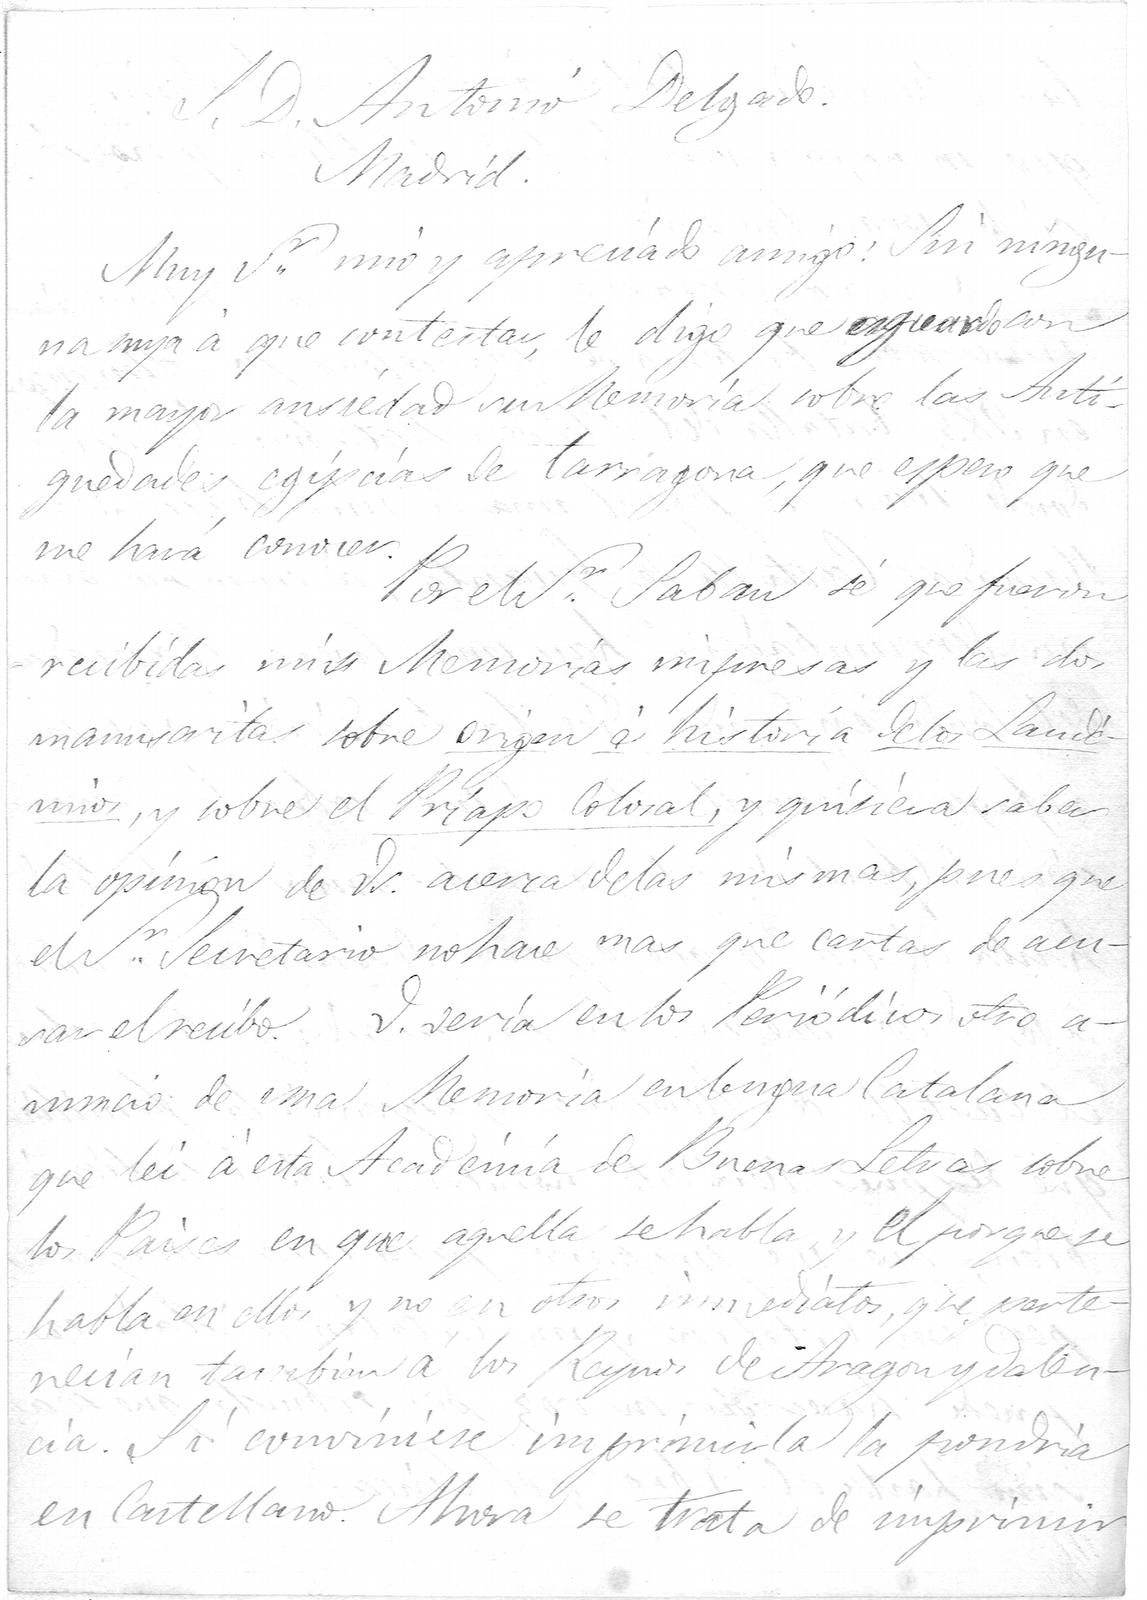 S. D. Antonio Delgado.
Madrid.
Muy Sr. mio y apreciado amigo: Sin ningu-
na suya à que contestar, le digo que aguardo con
la mayor ansiedad su Memoria sobre las Anti-
guedades egipcias de Tarragona, que espero que
me hará conocer.
Por el Sr. Sabau sé que fueron
recibidas mis Memorias impresas y las dos
manuscritas sobre origen é historia delos Laudé-
mios, y sobre el Priapo Colosal, y quisiera saber
la opinion de Vs. acerca delas mismas, pues que
el Sr. Secretario nohace mas que cartas de acu-
sar el recibo. V. veria en los Periódicos otro a-
nuncio de una Memoria en lengua Catalana
que lei á esta Académia de Buenas Letras sobre
los Paises en que aquella sehabla y el porque se
habla en ellos y no en otros inmediatos, que perte-
necian tambien á los Reynos de Aragon y Valen-
cia. Si conviniese imprimirla la pondria
en Castellano. Ahora se trata de imprimir